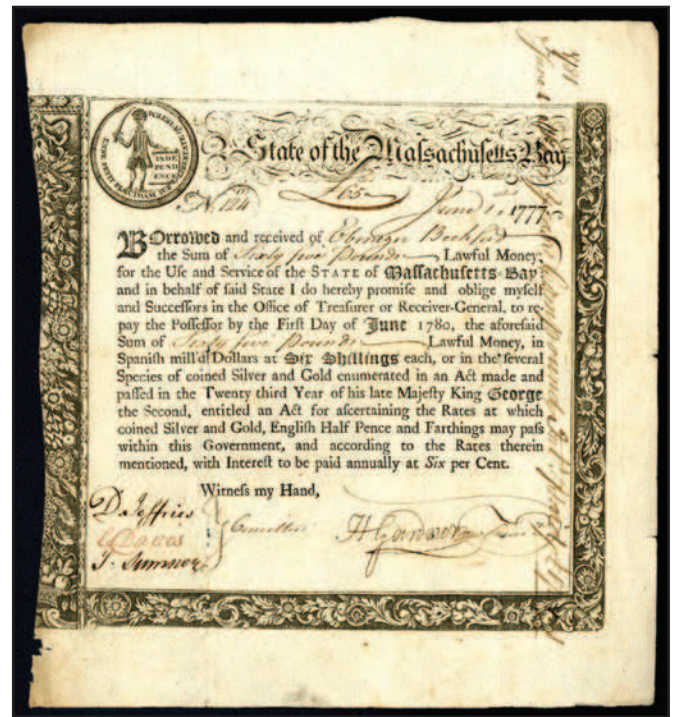 State of the Massachusetts-Bay
N. 124 £65 June 1st 1777
INDE
PEND
ENCE
BOrrowed and received of Ebenezer Beckford
the Sum of Sixty five Pounds Lawful Money,
for the Use and Service of the STATE of Massachusetts-Bay;
and in behalf of said State I do hereby promise and oblige myself
and Succeſſors in the Office of Treaſurer or Receiver-General, to re-
pay the Poſſeſſor by the Firſt Day of June 1780, the aforeſaid
Sum of Sixty five Pounds Lawful Money, in
Spaniſh mill'd Dollars at Six Shillings each, or in the ſeveral
Species of coined Silver and Gold enumerated in an Act made and
paſſed in the Twenty third Year of his late Majeſty King George
the Second, entitled an Act for aſcertaining the Rates at which
coined Silver and Gold, Engliſh Half Pence and Farthings may paſs
within this Government, and according to the Rates therein
mentioned, with Intereſt to be paid annually at Six per Cent.
Witneſs my Hand,
D Jeffries
J. Sumner
Committee
H Gardner